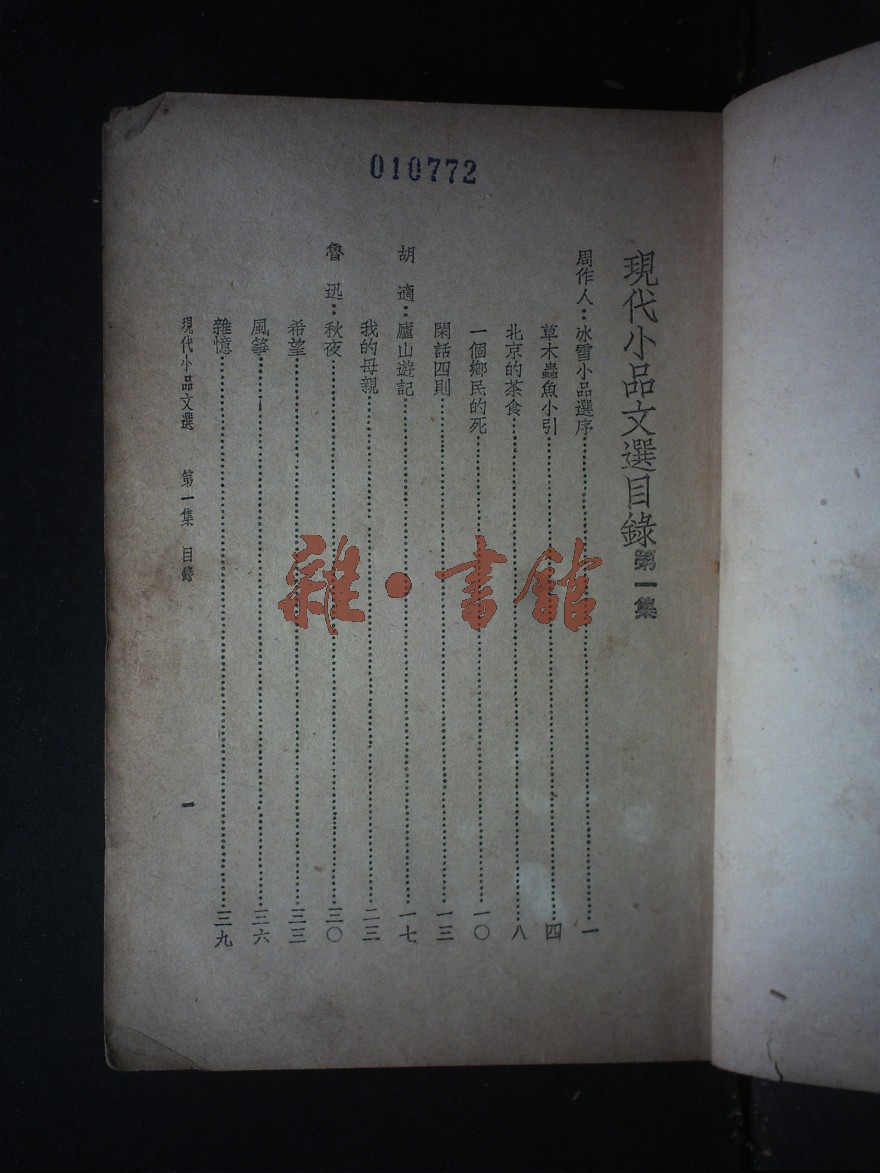 010772
現代小品文選目錄 第一集
周作人：冰雪小品選序……一
草木蟲魚小引……四
北京的茶食……八
一個鄉民的死……一〇
閑話四則……一三
胡適：廬山遊記……一七
我的母親……二三
魯迅：秋夜……三〇
希望……三三
風箏……三六
雜憶……三九
現代小品文選 第一集 目錄 一
雜·書館